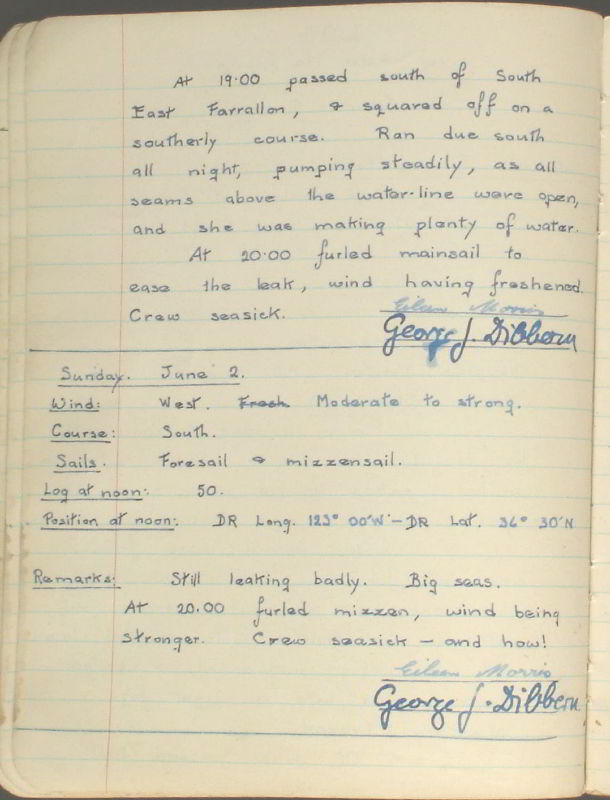 At 19·00 passed south of South
East Farrallon, & squared off on a
southerly course. Ran due south
all night, pumping steadily, as all
seams above the water-line were open,
and she was making plenty of water.
At 20·00 furled mainsail to
ease the leak, wind having freshened.
Crew seasick.
Eileen Morris
George J. Dibbern
Sunday. June 2.
Wind: West. Fresh. Moderate to strong.
Course: South.
Sails. Foresail & mizzensail.
Log at noon: 50.
Position at noon: DR Long. 123° 00'W - DR Lat. 36° 30'N
Remarks: Still leaking badly. Big seas.
At 20.00 furled mizzen, wind being
stronger. Crew seasick — and how!
Eileen Morris
George J. Dibbern